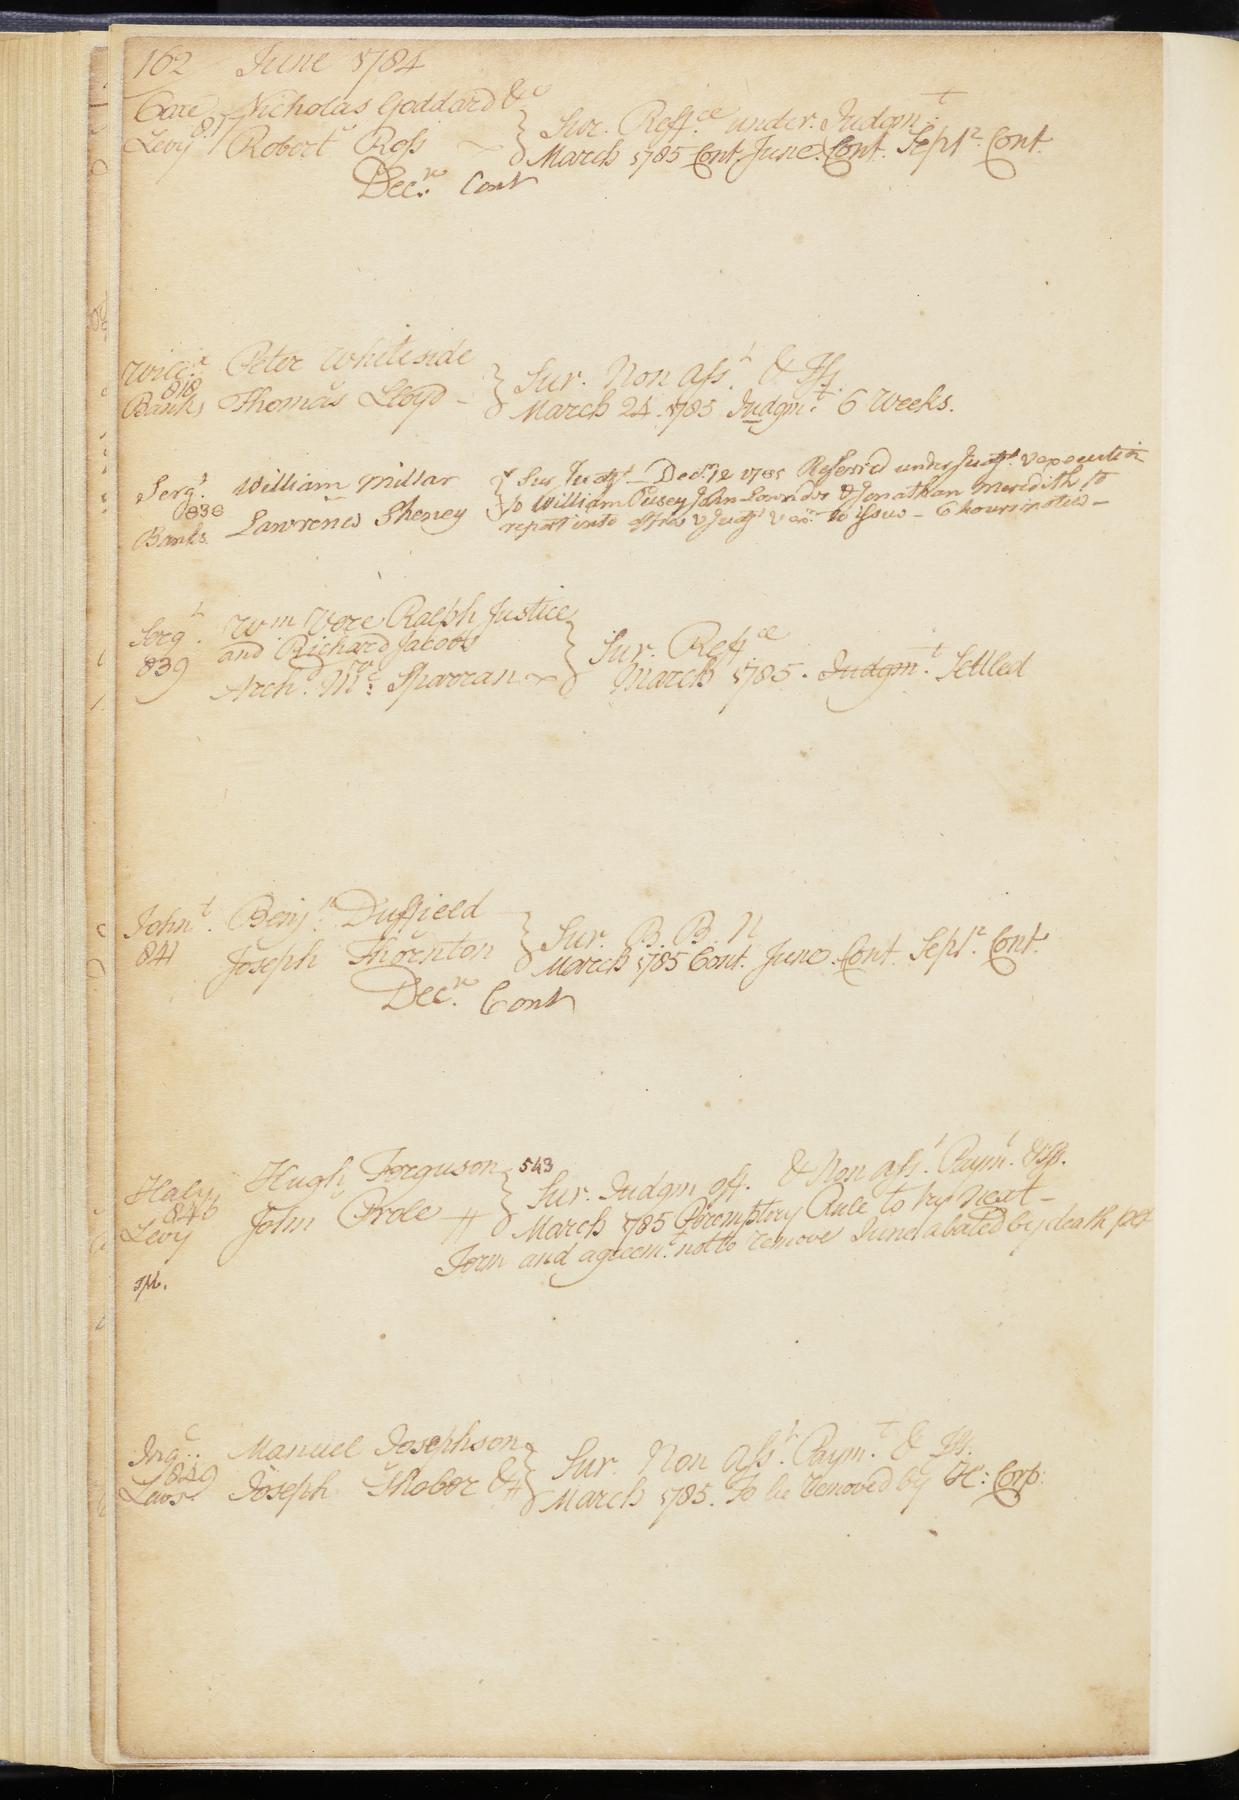 162 June 1784
Coxe Nicholas Goddard &c
817
Levy Robert Ross } Sur. Reff.ce under Judgm.t
March 1785 Cont. June. Cont. Sept.r Cont.
Dec.r Cont
Wilc.x Peter Whiteside
818
Banks Thomas Lloyd - } Sur. Non Ass.t & Iss.
March 24. 1785 Judgm.t 6 Weeks.
Serg.t William Millar } Sur. Judgt. Dec.r 12 1785 Referred under Judgt. & execution
838
to William Pusey John Lownder & Jonathan Meredith to
Banks Lawrence Sheney report into office & Judgt & exn. to issue - 6 hours notice -
Serg.t Wm Vere Ralph Justice
839 and Richard Jacobs } Sur. Reff.ce
Arch.d Mc. Sparran March 1785. Judgm.t Settled
John.t Benj.n Duffield } Sur. B. B. N
841 Joseph Thornton March 1785 Cont. June. Cont. Sept.r Cont.
Dec.r Cont
Haly Hugh Ferguson 543
846 } Sur. Judgm off. & Non Ass.t Paym.t & Iss.
Levy John Prole # March 1785 Peremptory Rule to try Next -
Term and agreem.t not to remove June abated by death
Ing.... Manuel Josephson } Sur. Non Ass.t Paym.t & Iss.
849
Lawr. Joseph Thobor & # March 1785. To be removed by H: Corp: